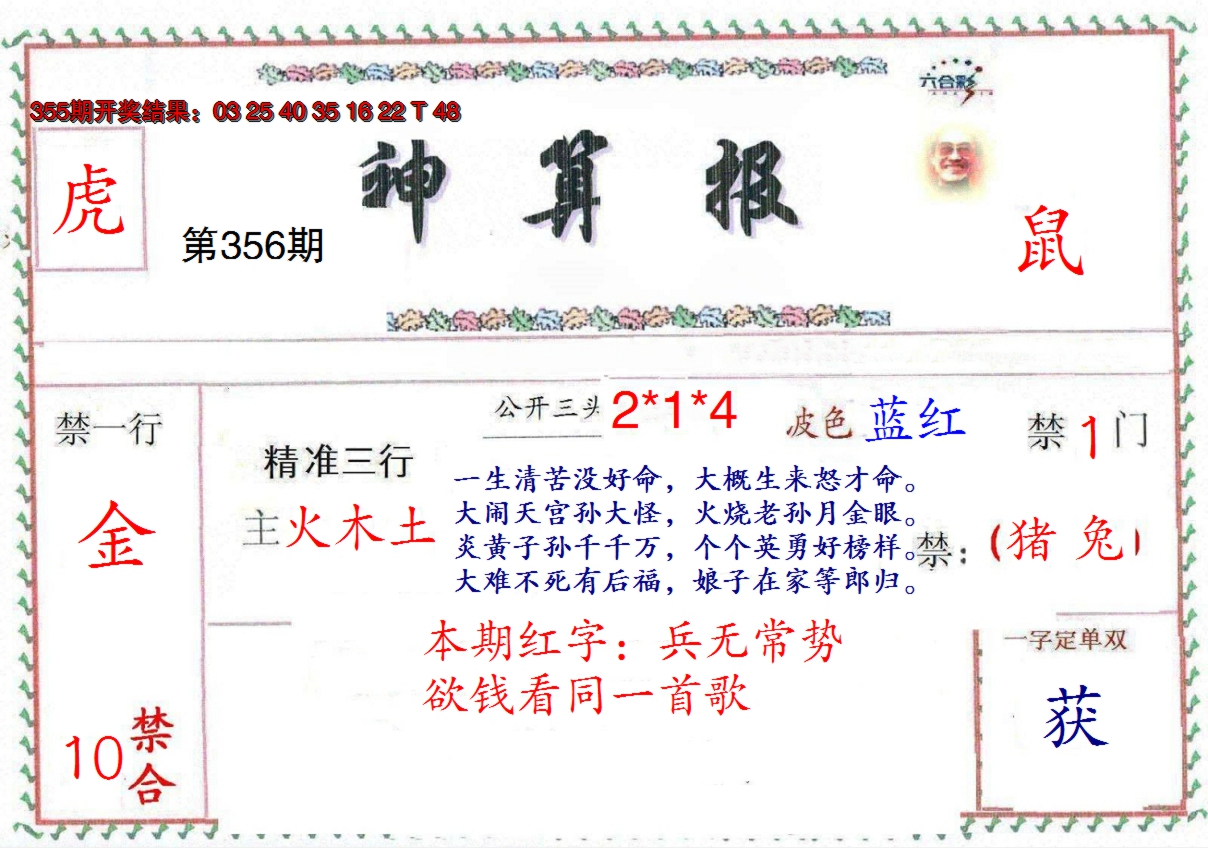 六合彩
355期开奖结果：03 25 40 35 16 22 T 48
神算报
虎
第356期
鼠
禁一行
金
10禁合
精准三行
主火木土
公开三头 2*1*4
波色 蓝红
禁1门
一生清苦没好命，大概生来怒才命。
大闹天宫孙大怪，火烧老孙月金眼。
炎黄子孙千千万，个个英勇好榜样。
大难不死有后福，娘子在家等郎归。
禁：（猪 兔）
本期红字：兵无常势
欲钱看同一首歌
一字定单双
获